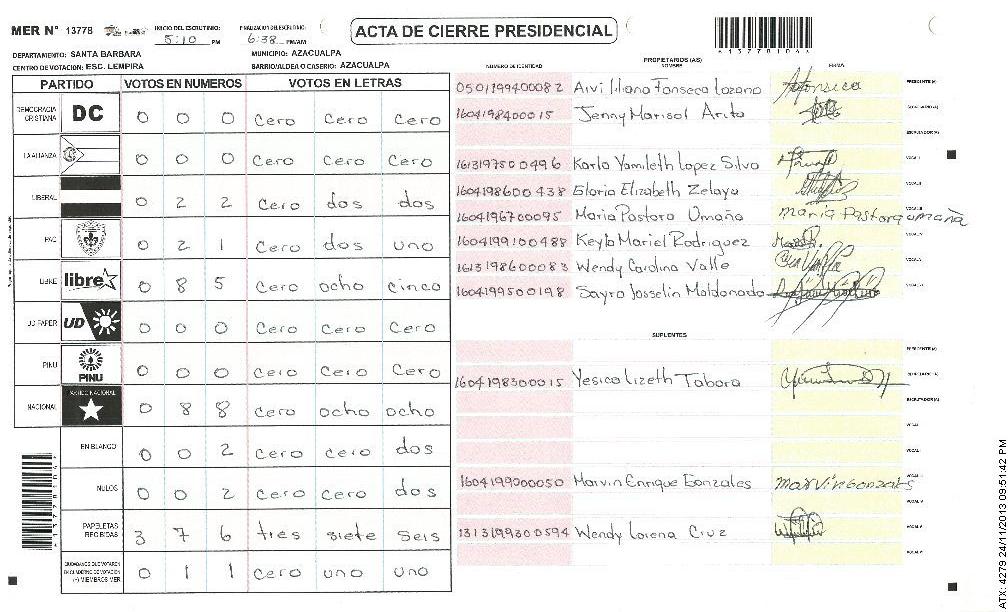 MER N° 13778
INICIO DEL ESCRUTINIO: 5:10 PM
FINALIZACION DEL ESCRUTINIO: 6:38 PM/AM
ACTA DE CIERRE PRESIDENCIAL
DEPARTAMENTO: SANTA BARBARA
MUNICIPIO: AZACUALPA
CENTRO DE VOTACION: ESC. LEMPIRA
BARRIO/ALDEA O CASERIO: AZACUALPA
PARTIDO VOTOS EN NUMEROS VOTOS EN LETRAS
DEMOCRACIA CRISTIANA DC 0 0 0 Cero Cero Cero
LA ALIANZA 0 0 0 Cero Cero Cero
LIBERAL 0 2 2 Cero dos dos
PAC 0 2 1 Cero dos uno
LIBRE libre 0 8 5 Cero ocho cinco
UD-FAPER UD 0 0 0 Cero Cero Cero
PINU PINU 0 0 0 Cero Cero Cero
NACIONAL PARTIDO NACIONAL 0 8 8 Cero ocho ocho
EN BLANCO 0 0 2 Cero cero dos
NULOS 0 0 2 Cero Cero dos
PAPELETAS RECIBIDAS 3 7 6 tres siete seis
CIUDADANOS QUE VOTARON EN CUADERNO DE VOTACION (+) MIEMBROS MER 0 1 1 Cero uno uno
PROPIETARIOS (AS)
NUMERO DE IDENTIDAD NOMBRE FIRMA
0501199400082 Arvi Iliana Fonseca Lozano Afonseca PRESIDENTE (A)
1604198400015 Jenny Marisol Arita SECRETARIO (A)
ESCRUTADOR (A)
1613197500496 Karla Yamileth Lopez Silva VOCAL I
1604198600438 Gloria Elizabeth Zelaya VOCAL II
1604196700095 Maria Pastora Umaña maria Pastora umaña VOCAL III
1604199100488 Keyla Mariel Rodriguez VOCAL IV
1613198600083 Wendy Carolina Valle VOCAL V
1604199500198 Sayra Josselin Maldonado
SUPLENTES
PRESIDENTE (A)
1604198300015 Yesica Lizeth Tabora SECRETARIO (A)
ESCRUTADOR (A)
1604199000050 Marvin Enrique Gonzales marvin Gonzales
1313199300594 Wendy Lorena Cruz
13778041
ATX: 4279 24/11/2013 09:51:42 PM